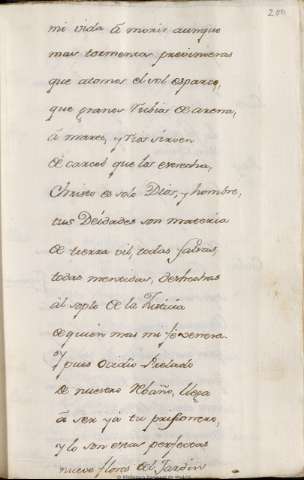 200
mi vida â morir aunque
mas tormentos previnieras
que atomos el sol esparce,
que granos Rubias de arena,
â mares, y rios sirven
de carcel que los estrecha,
Christo es solo Dios, y hombre,
tus Deidades son materia
de tierra vil, todas falsas,
todas mentidas, deshechas
al soplo de la Justicia
de quien mas mi fe venera.
Y pues Prelado
de nuestro Rbaño, llega
â ser yâ tu prisionero,
y lo son estas perfectas
nueve flores del Jardin